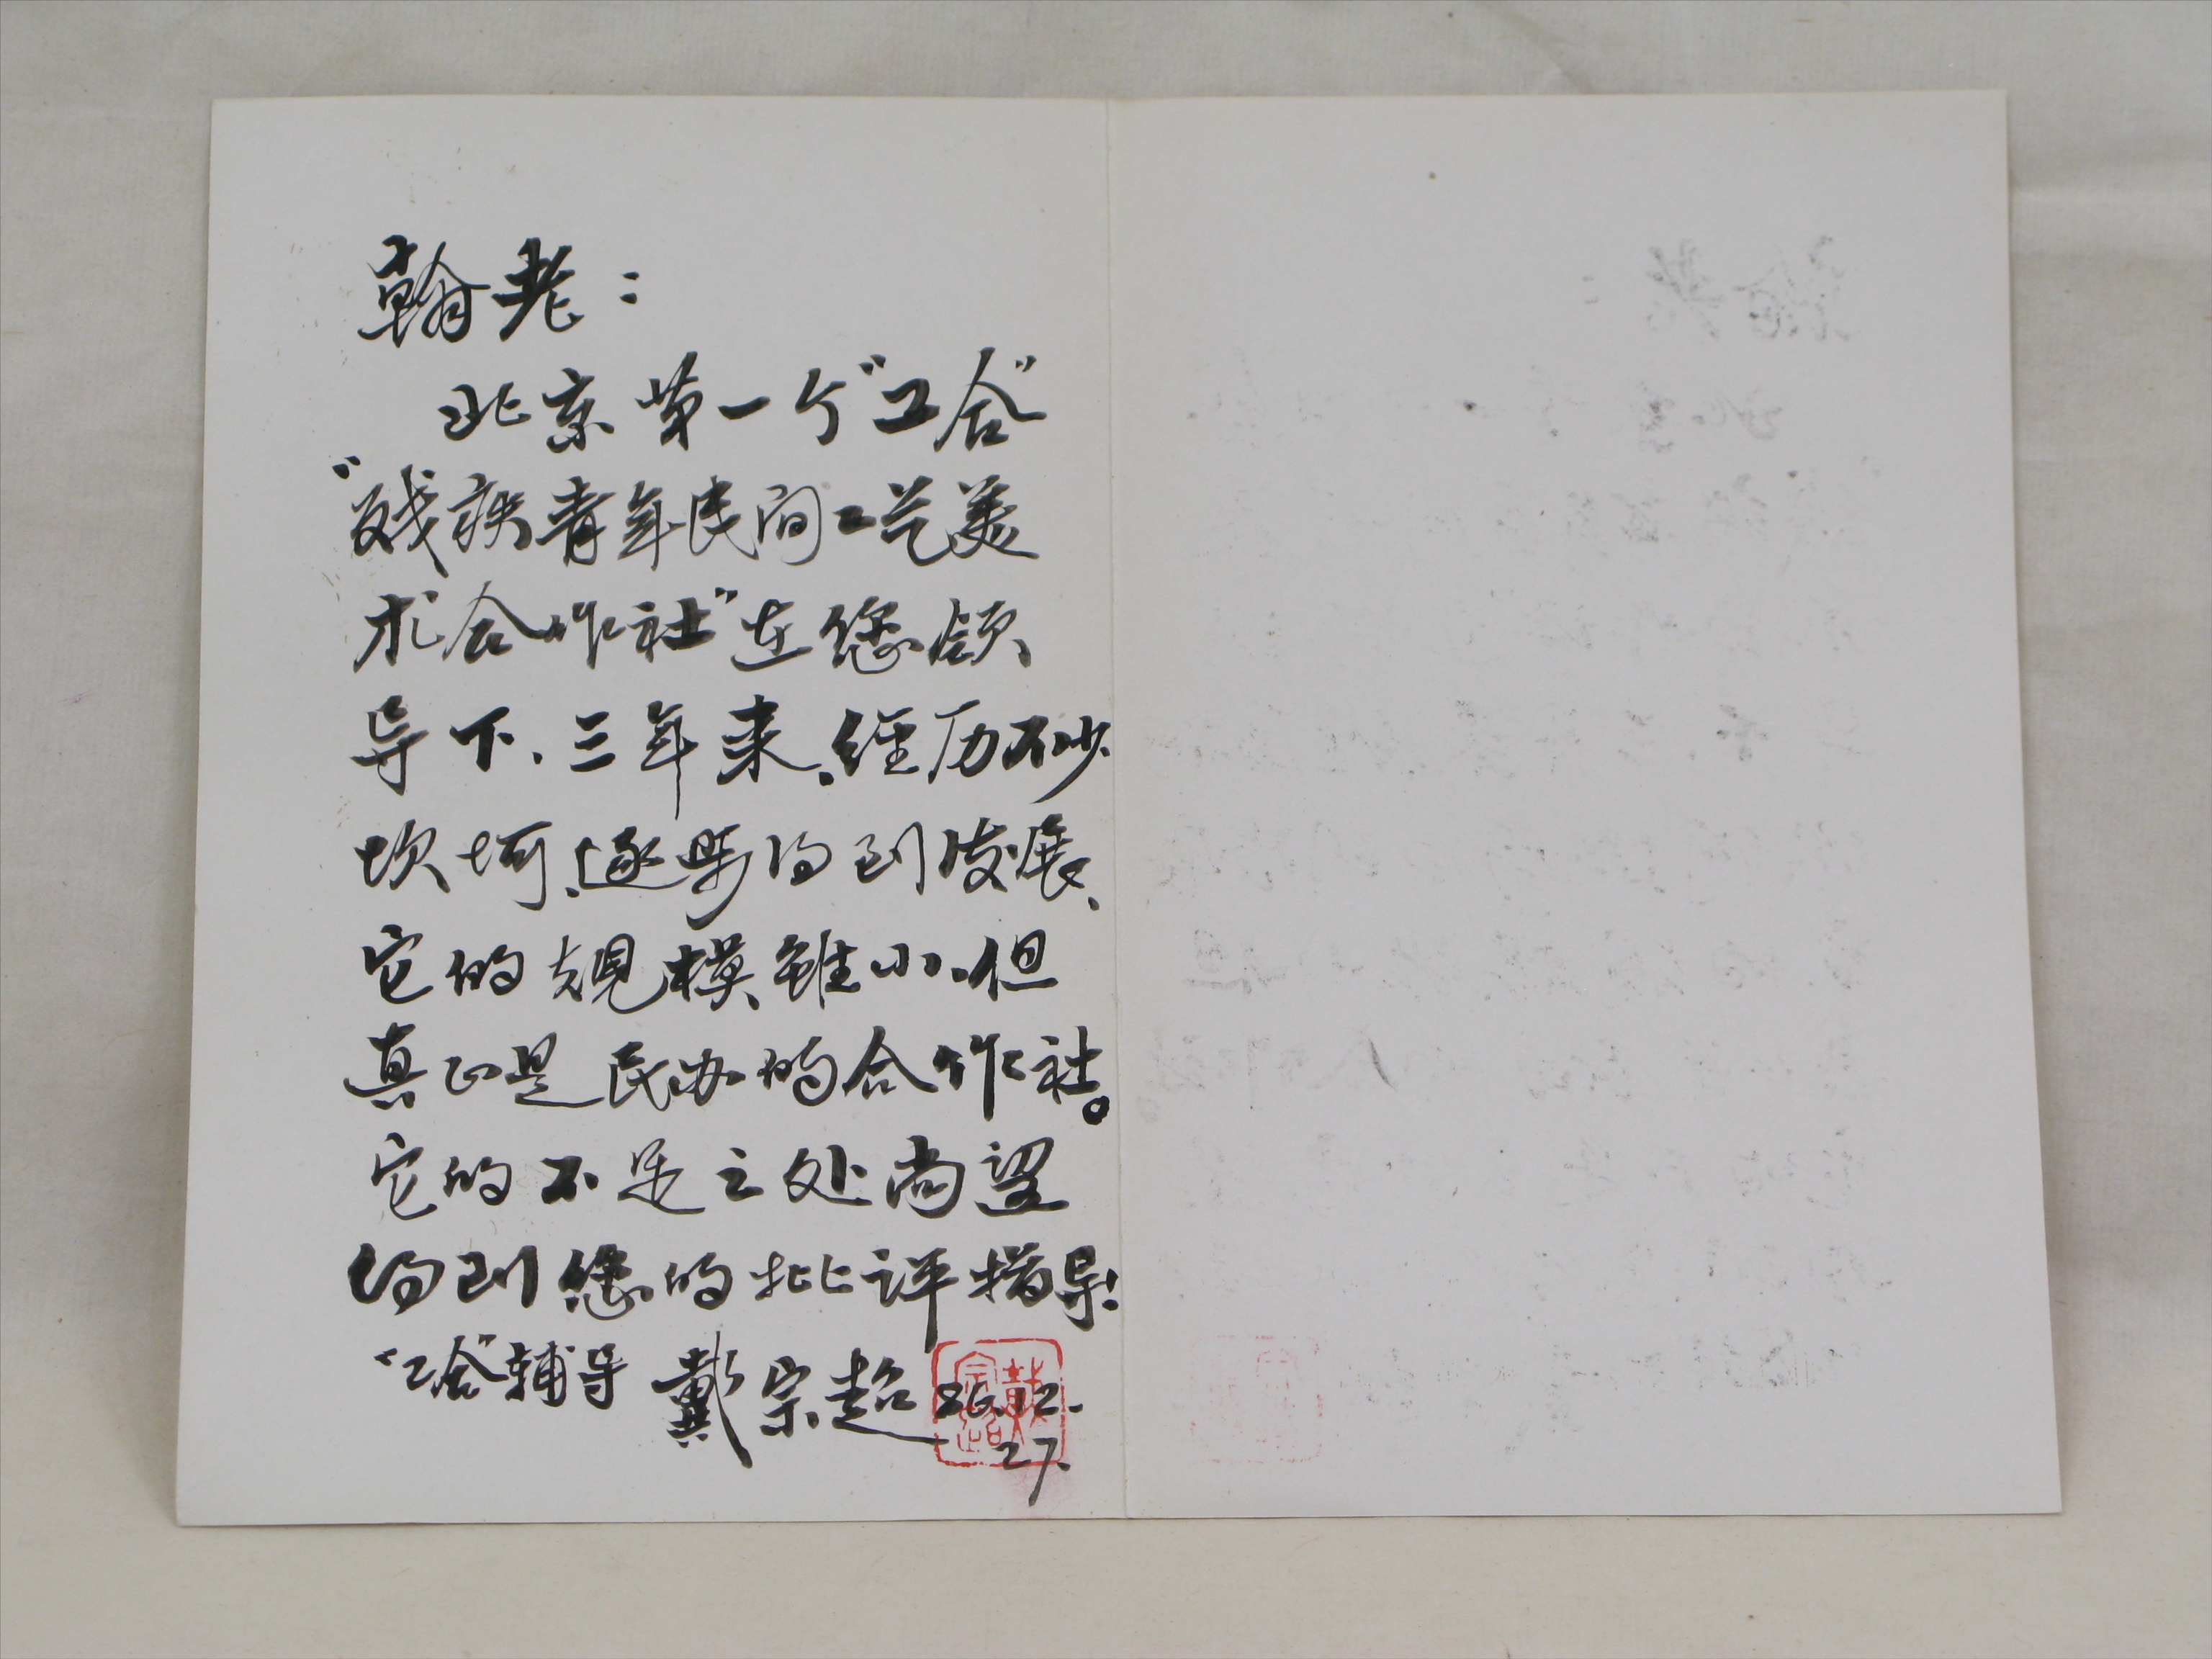 翰老：
北京第一个"工合"
"残疾青年民间工艺美
术合作社"在您领
导下、三年来、经历不少
坎坷、逐步得到发展、
它的规模虽小、但
真正是民办的合作社。
它的不足之处尚望
得到您的批评指导!
"工合"辅导 戴宗超 86.12.
27.